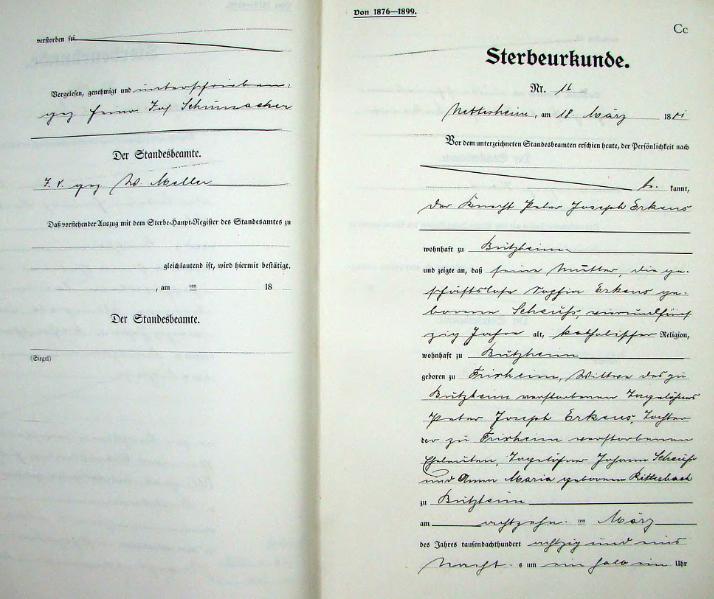 verstorben sei.
Vorgelesen, genehmigt und unterschrieben.
gez. Jos. Schumacher
Der Standesbeamte.
I. V. gez. W. Müller
Daß vorstehender Auszug mit dem Sterbe-Haupt-Register des Standesamtes zu
gleichlautend ist, wird hiermit bestätigt.
, am ten 18
Der Standesbeamte.
(Siegel)
Von 1876—1899.
Cc
Sterbeurkunde.
Nr. 11
, am 18 März 1881
Vor dem unterzeichneten Standesbeamten erschien heute, der Persönlichkeit nach
be kannt,
der Knecht Peter Joseph Erkens
wohnhaft zu Bützheim
und zeigte an, daß seine Mutter, die ge-
schäftslose Sophia Erkens ge-
borene Scheufs, vierundfünf
zig Jahre alt, katholischer Religion,
wohnhaft zu Bützheim
geboren zu Frixheim, Wittwe des zu
Bützheim verstorbenen Tagelöhners
Peter Joseph Erkens, Tochter
der zu Frixheim verstorbenen
Eheleuten, Tagelöhner Johann Scheufs
und Anna Maria geborenen Ritterbach
zu Bützheim
am achtzehn ten März
des Jahres tausendachthundert achtzig und eins
Nachts um ein halb ein Uhr